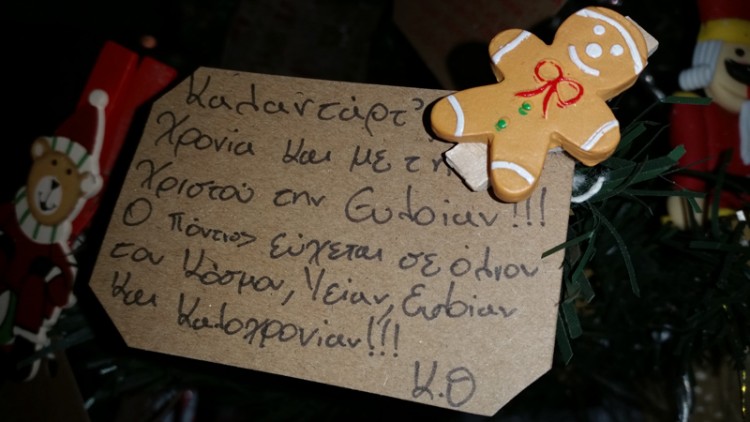 Καλαντάρτ'
Χρονία και με τη
Χριστού την Ευλοίαν!!!
Ο Πόντιος εύχεται σε όλιον
τον Κόσμον, Υείαν, Ευλοίαν
και Καλοχρονίαν!!!
Κ.Θ